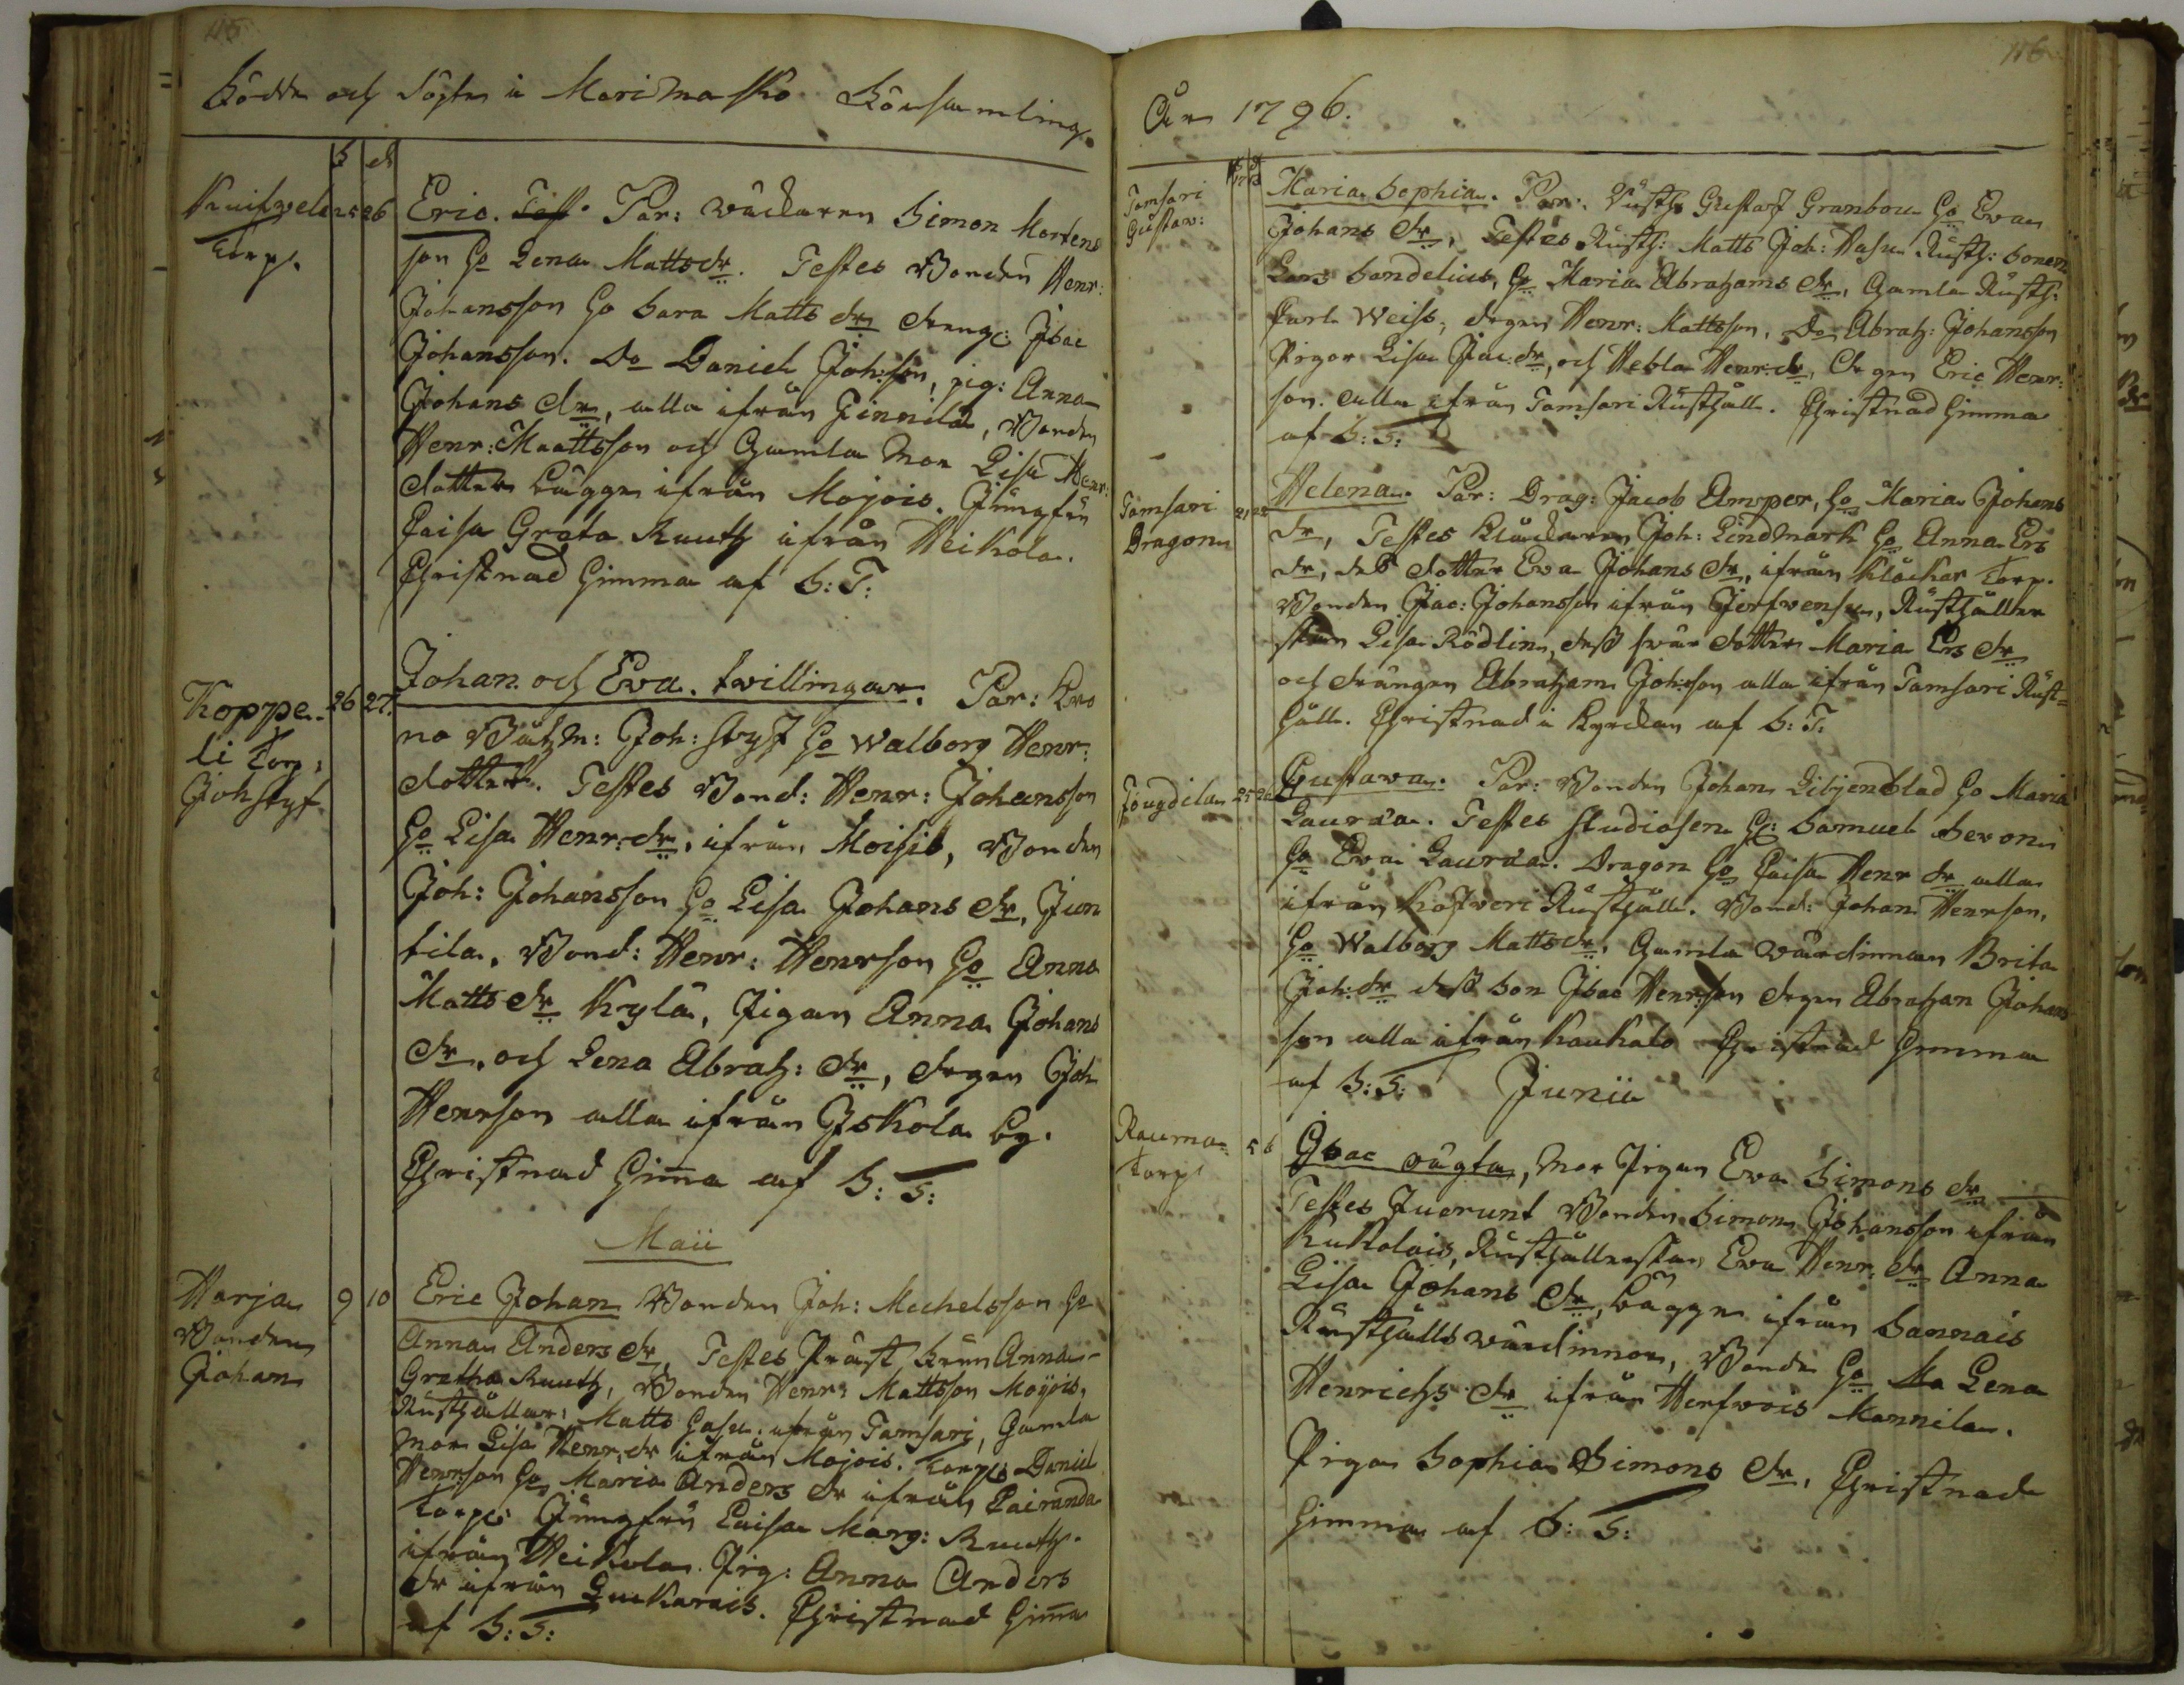 115
Födde och Döpte i Marie Masko Församling.
f d
Knihtvele
Torp. 25 26
Eric. Test. Par: wäckaren Simon Mortens
son Ho Lena Matts dr. Testes Bonden Henr:
Johansson Ho Sara Matts dr drengc: Isac
Johansson. Do Daniel Joh:son, pig: Anna
Johans dr, alla ifrån Finnilä, Bonden
Henr: Maattsson och Gamla Mor Lisa Henr:
dotter bägge ifrån Mojois. Jungfru
Caisa Greta Ruuth ifrån Heikola.
Christnad hemma af S: T:
Koppe-
li Torp:
Joh Styf 26 27.
Johan och Eva. twillingar. Par: Bro
no Båtzm: Joh: Styf Ho Walborg Henr:
dotter. Testes Bond: Henr: Johansson
Ho Lisa Henr: dr, ifrån Moisis, Bonden
Joh: Johansson Ho Lisa Johans dr, Jun
tila, Bond: Henr: Henrson Ho Anna
Matts dr Kylä, Pigan Anna Johans
dr, och Lena Abrah: dr, dregen Joh
Henrson alla ifrån Iskola by.
Christnad hema af S: T:
Maii
Harjan
Bonden
Johan 9 10
Eric Johan Bonden Joh: Mechelsson Ho
Anna Anders dr, Testes Präst frun Anna
Gretha Ruuth, Bonden Henr: Mattsson Moijois,
Rusthållar: Matts Hasu. ifrån Tamsari, Gamla
mor Lisa Henr. dr ifrån Mojois. Torp: Daniel
Henrson Ho Maria Anders dr ifrån Pairanda
Torp: Jungfru Caisa Marg: Ruuth.
ifrån Heikola. Pig: Anna Anders
dr ifrån Luukarais. Christnad hema
af S: T:
116
År 1796.
Tamsari
Gustav: 17 18
Maria Sophia. Par: Rusth: Gustaf Granbou Ho Eva
Johans dr, Testes Rusth: Matts Joh: Hasu Rusth: Sonen
Lars Sandelius, Ho Maria Abrahams dr, Gamla Rusth:
Carl Weiss, dregen Henr: Mattsson, Do Abrah: Johansson
Pigor Lisa Jac: dr, och Hebla Henr: dr, dregen Eric Henr:
son. Alla ifrån Tamsari Rusthåll. Christnad hemma
af S: T:
Tamsari
Dragon 21 22
Helena. Par: Drag: Jacob Amper, Ho Maria Johans
dr, Testes Kläckaren Joh: Lindmark Ho Anna Ers
dr, dess dotter Eva Johans dr, ifrån Kläckar Torp.
Bonden Jac: Johansson ifrån Jerfvensu, Rusthåller
skan Lisa Rödlin, dess svär dotter Maria Ers dr
och drängen Abraham Joh:son alla ifrån Tamsari Rust=
håll. Christnad i kyrckan af S: T:
Fougdila 25 26
Gustava. Par: Bonden Johan Liljenblad Ho Maria
Laurda. Testes Studiosen H: Samuel Seron
Ho Eva Laurda. Dragon Ho Caisa Henr dr alla
ifrån Kåfweri Rusthåll. Bond: Johan Henrson,
Ho Walborg Matts dr, Gamla wärdinnan Brita
Joh: dr dess son Isac Henrson dregen Abraham Johans
son alla ifrån Kaukala Christnad hemma
af S: T:
Junii
Rauma
Torp 5 6
Isac oägta, Mor Pigan Eva Simons dr
Testes Fuerunt Bonden Simon Johansson ifrån
Kukolais, Rusthållerskan Eva Henr. dr Anna
Lisa Johans dr, bägge ifrån Sannais
Rusthålls wärdinnor, Bonde Ho Ma Lena
Henrichs dr ifrån Herfvois Mannila.
Pigan Sophia Simons dr, Christnad
hemma af S: T: